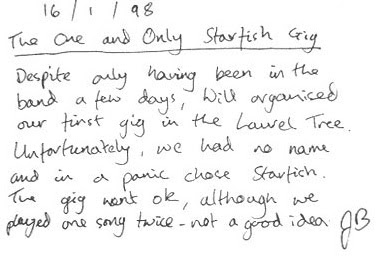 16 / 1 / 98
The One and Only Starfish Gig
Despite only having been in the
band a few days, Will organised
our first gig in the Laurel Tree.
Unfortunately, we had no name
and in a panic chose Starfish.
The gig went ok, although we
played one song twice - not a good idea JB